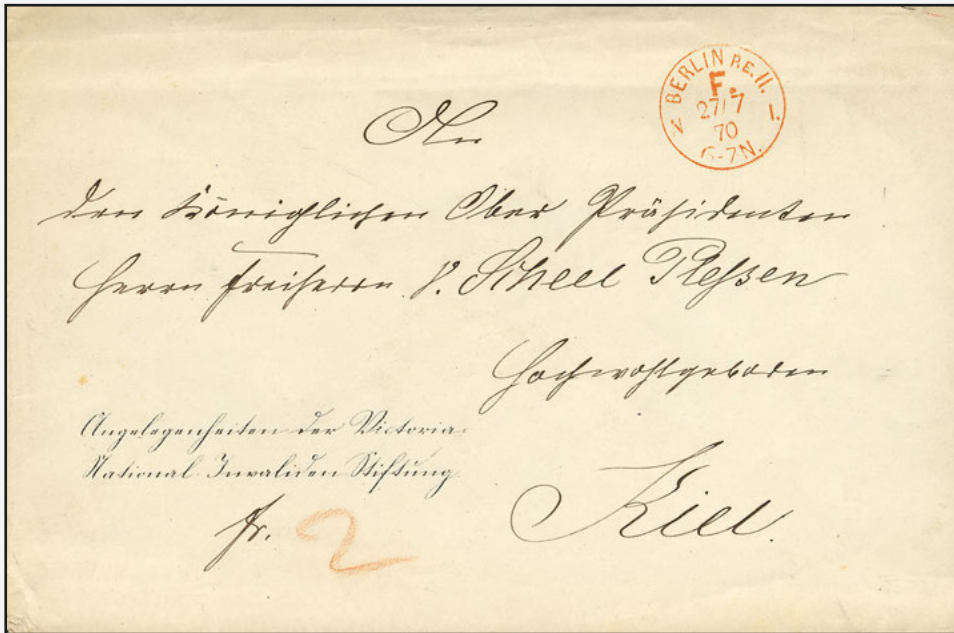 BERLIN P.E. II.
F.
27/7
70
6-7N.
An
den Königlichen Ober Präsidenten
Herrn Freiherrn v. Scheel Pleßen
Hochwohlgeboren
Angelegenheiten der Victoria-
National-Invaliden Stiftung.
fr. 2
Kiel.